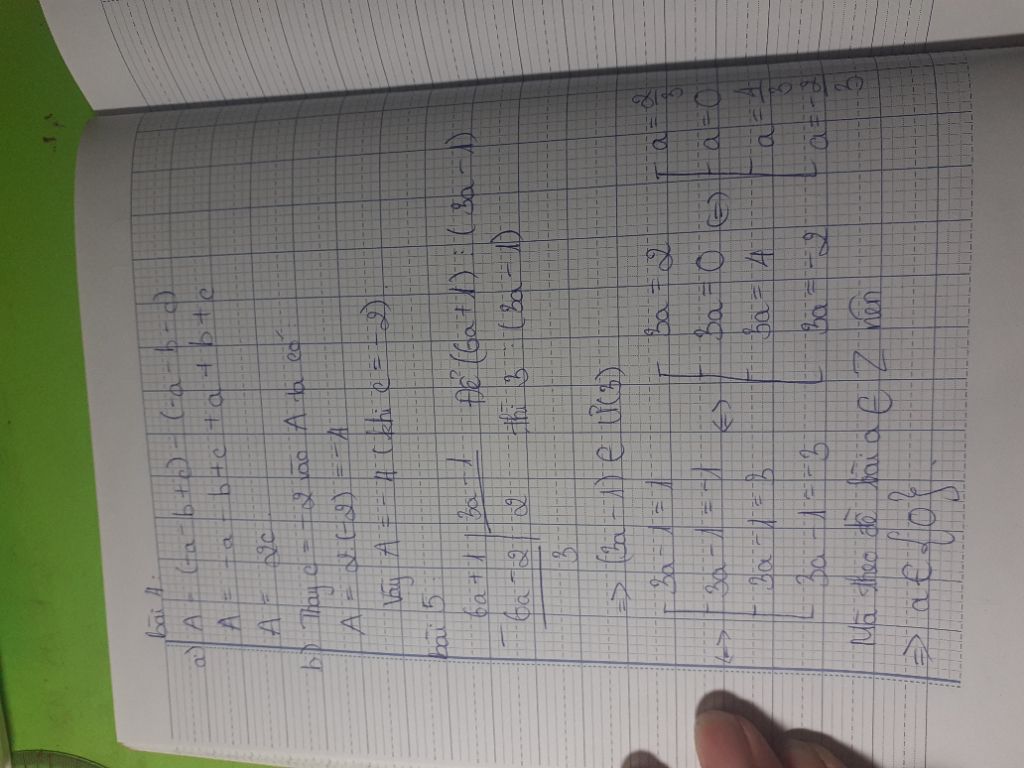 bài 4.
a) A = (-a - b + c) - (-a - b - c)
A = -a - b + c + a + b + c
A = 2c
b) Thay c = -2 vào A ta có
A = 2(-2) = -4
Vậy A = -4 (khi c = -2).
bài 5.
6a + 1 | 3a - 1 Để (6a + 1) ⋮ (3a - 1)
- 6a - 2 | 2 thì 3 ⋮ (3a - 1)
3
=> (3a - 1) ∈ Ư(3)
[ 3a - 1 = 1 [ 3a = 2 [ a = 2/3
<=> [ 3a - 1 = -1 <=> [ 3a = 0 <=> [ a = 0
[ 3a - 1 = 3 [ 3a = 4 [ a = 4/3
[ 3a - 1 = -3 [ 3a = -2 [ a = -2/3
Mà theo đề bài a ∈ Z nên
=> a ∈ {0}.